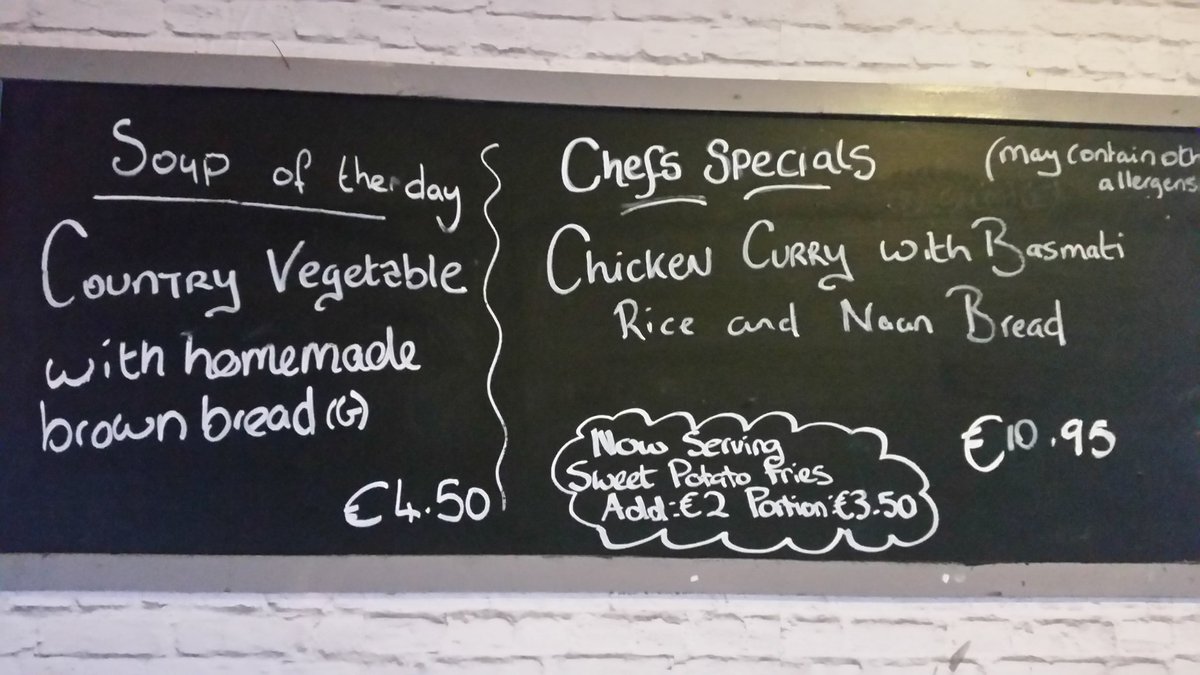 Soup of the day
Country Vegetable
with homemade
brown bread (G)
€4.50
Chefs Specials
(may contain oth
allergens
Chicken Curry with Basmati
Rice and Naan Bread
€10.95
Now Serving
Sweet Potato Fries
Add:€2 Portion:€3.50